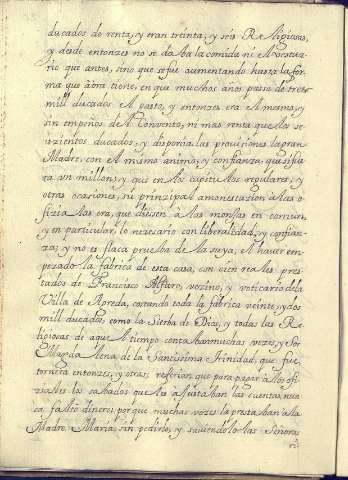 ducados de renta, y eran treinta, y seis Religiosas,
y desde entonzes no se daba la comida ni el vestua-
rio que antes, sino que se fue aumentando hasta la for-
ma que aora tiene, en que muchos años passa de tres
mill ducados el gasto, y entonzes era el mesmo, y
sin empeños del Convento, ni mas renta que los se
izientos ducados, y disponia las provisiones la gran
Madre, con el mismo animo, y confianza, que si fue
ra un millon, y que en los capitulos regulares, y
otras ocasiones, su principal amonestazion a las o
fizialas era, que diesen à las monjas en comun,
y en particular, lo nezesario con liberalidad, y confian-
za, y no es flaca prueba de la suya, el haver em-
pezado la fabrica de esta casa, con cien reales pres
tados de Francisco Alfaro, vezino, y voticario dela
Villa de Agreda, costando toda la fabrica veinte, y dos
mill ducados, como la Sierba de Dios, y todas las Re-
ligiosas de aquel tiempo contaban muchas vezes, y Sor
Magdalena de la Santissima Trinidad, que fue
tornera entonzes, y otras, referian que para pagar a los ofi
ziales los sabados que les ajustaban las cuentas nun
ca falto dinero, porque muchas vezes la prestaban a la
Madre Maria, sin pedirle, y saviendolo las Señoras